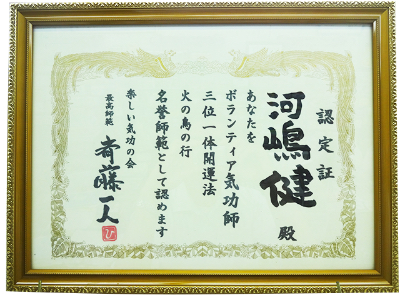 認定証
河嶋健 殿
あなたを
ボランティア気功師
三位一体開運法
火の鳥の行
名誉師範として認めます
楽しい気功の会
最高師範
斎藤一人
ひ